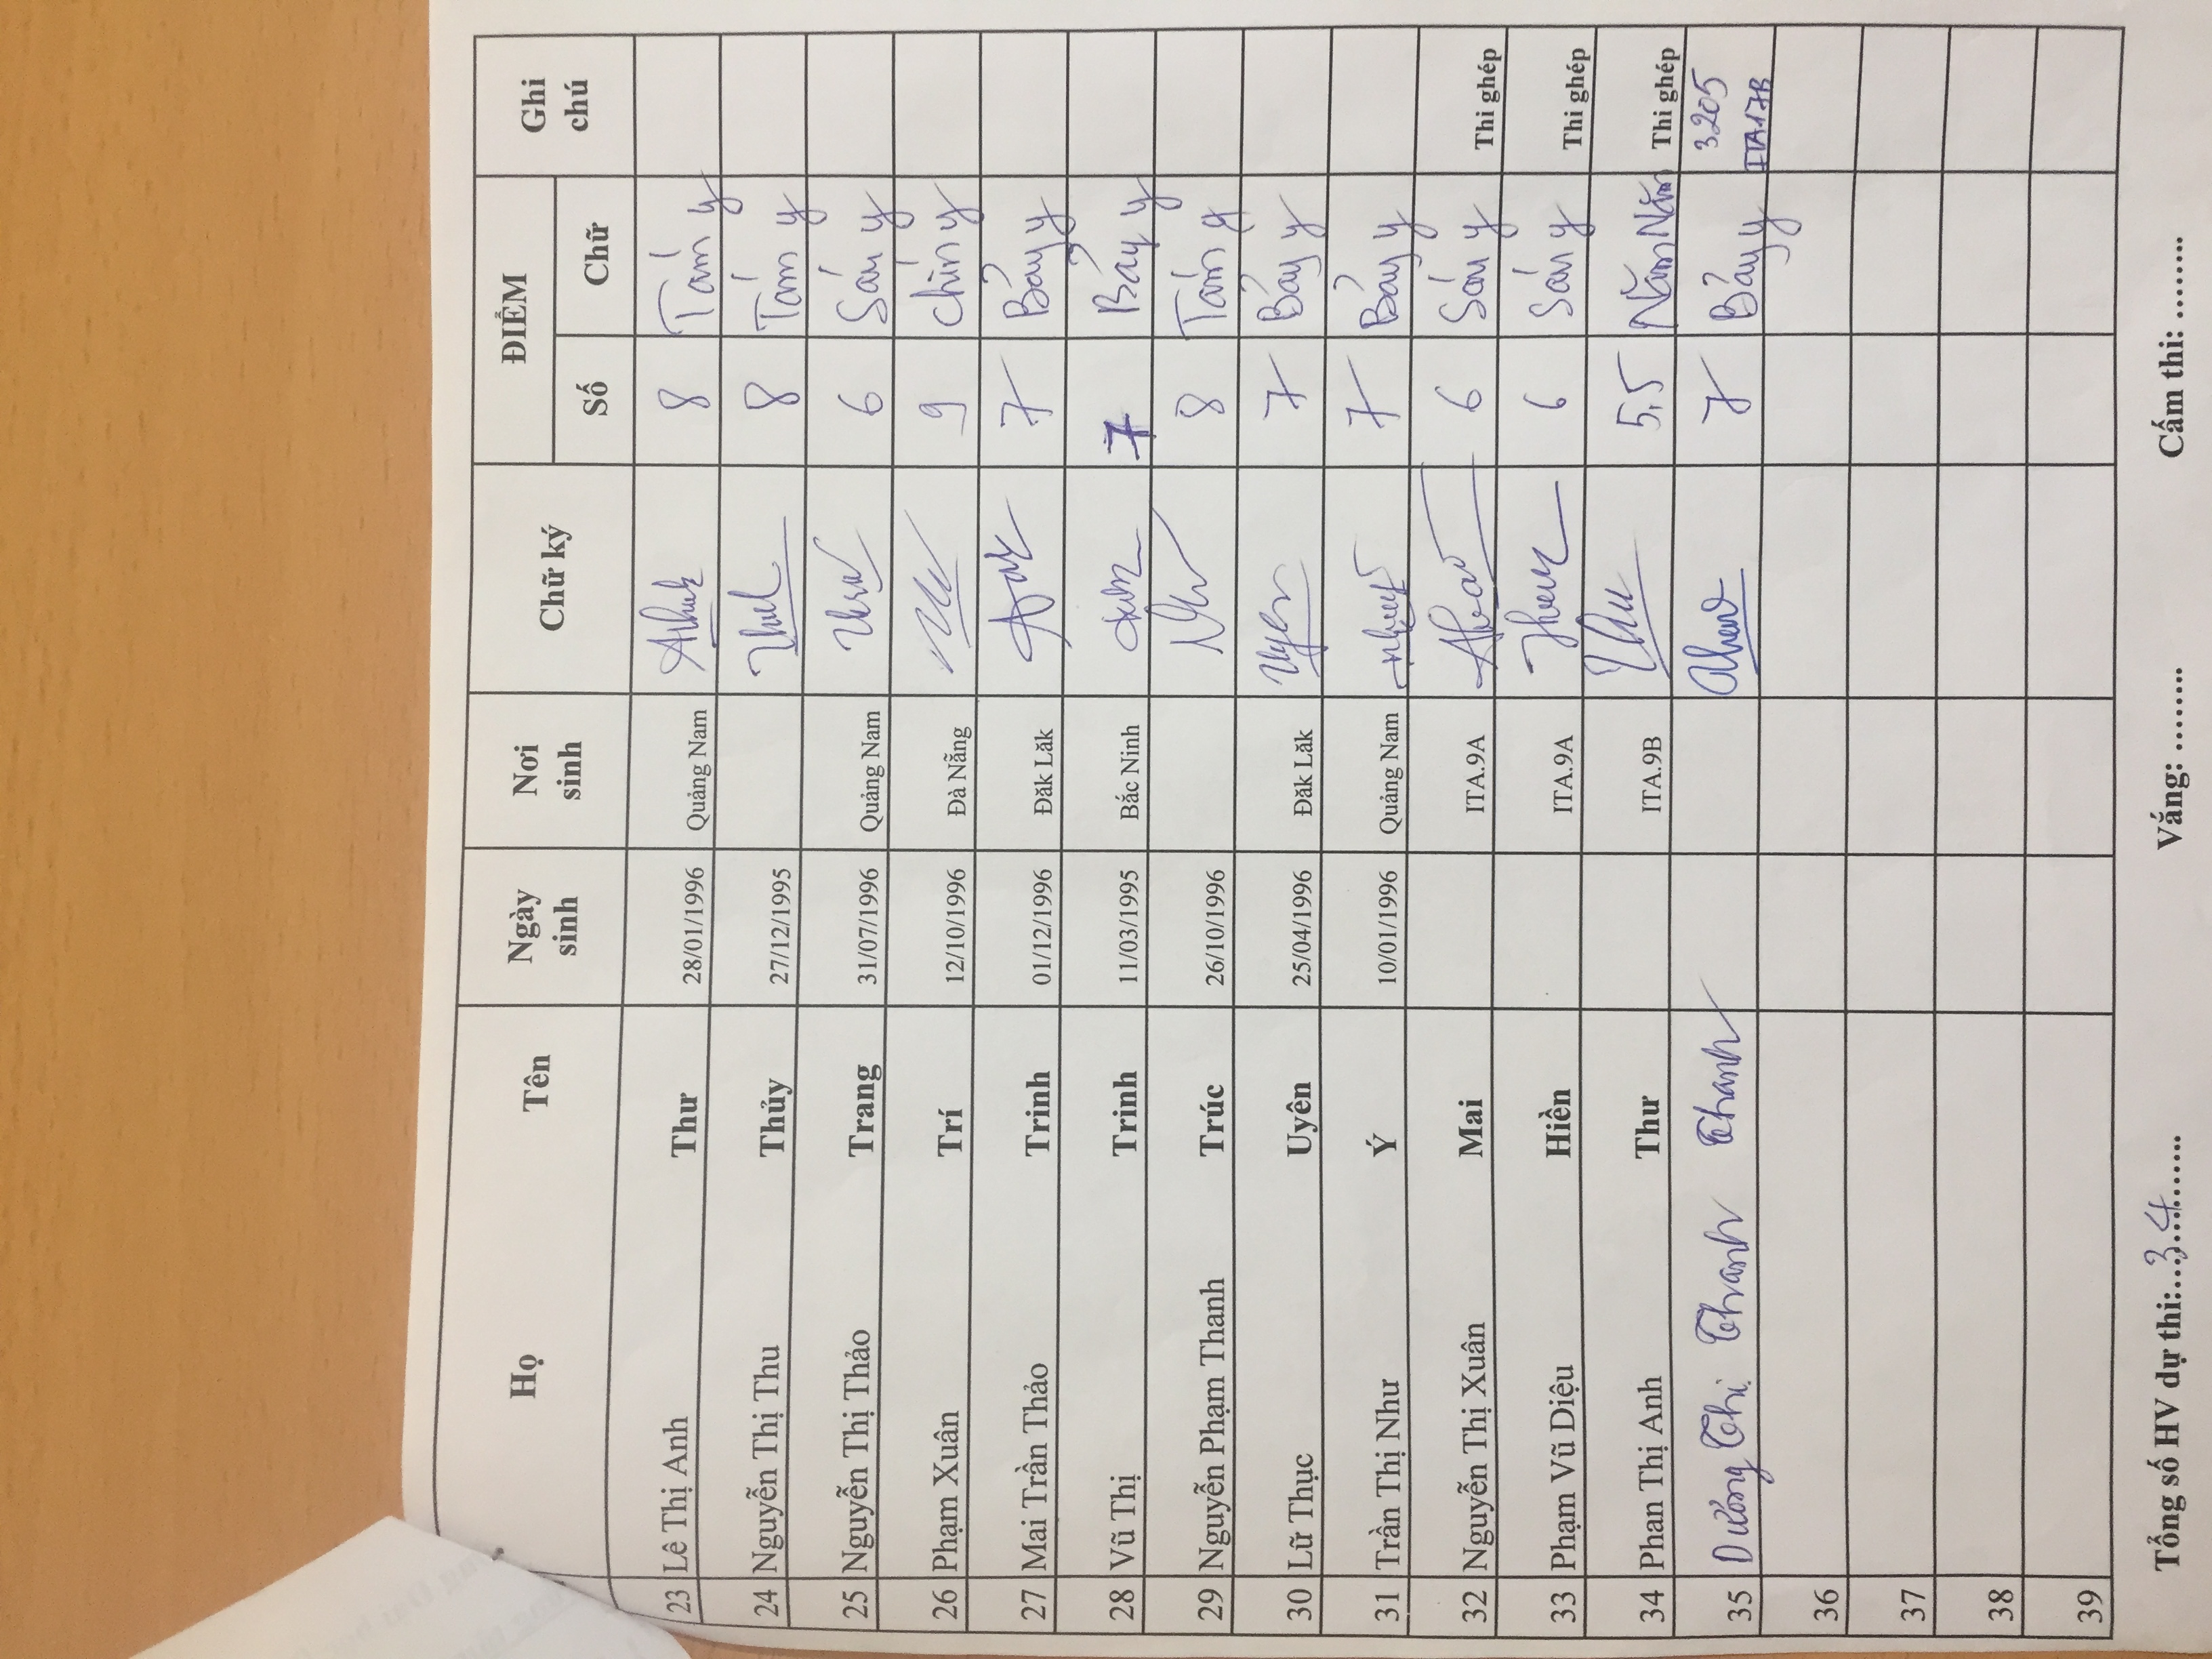 Họ Tên Ngày sinh Nơi sinh Chữ ký ĐIỂM Ghi chú
Số Chữ
23 Lê Thị Anh Thư 28/01/1996 Quảng Nam 8 Tám y
24 Nguyễn Thị Thu Thủy 27/12/1995 8 Tám y
25 Nguyễn Thị Thảo Trang 31/07/1996 Quảng Nam 6 Sáu y
26 Phạm Xuân Trí 12/10/1996 Đà Nẵng 9 Chín y
27 Mai Trần Thảo Trinh 01/12/1996 Đăk Lăk 7 Bảy y
28 Vũ Thị Trinh 11/03/1995 Bắc Ninh 7 Bảy y
29 Nguyễn Phạm Thanh Trúc 26/10/1996 8 Tám y
30 Lữ Thục Uyên 25/04/1996 Đăk Lăk Uyên 7 Bảy y
31 Trần Thị Như Ý 10/01/1996 Quảng Nam 7 Bảy y
32 Nguyễn Thị Xuân Mai ITA.9A 6 Sáu y Thi ghép
33 Phạm Vũ Diệu Hiền ITA.9A 6 Sáu y Thi ghép
34 Phan Thị Anh Thư ITA.9B Thu 5,5 Năm Năm Thi ghép
35 Dương Thị Thanh Thanh 7 Bảy y 3205 ITA17B
36
37
38
39
Tổng số HV dự thi:...34....... Vắng: ....... Cấm thi: ........